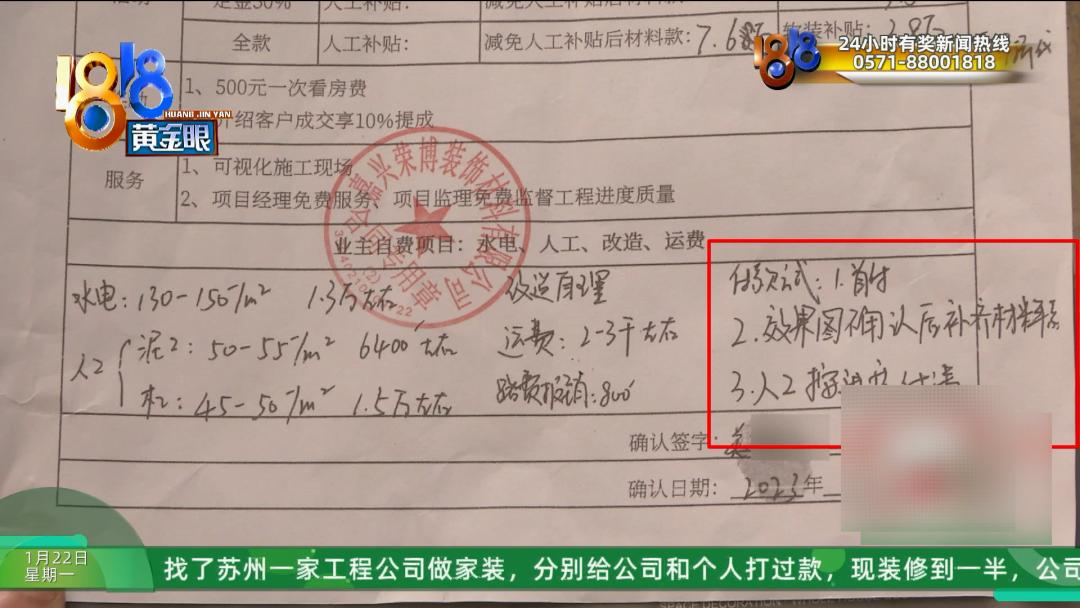 定金30% 人工补贴： 减免人工补贴后材料款：
全款 人工补贴： 减免人工补贴后材料款：7.68万 软装补贴：
1818
HUANG JIN YAN
黄金眼
1818
24小时有奖新闻热线
0571-88001818
1、500元一次看房费
介绍客户成交享10%提成
服务
1、可视化施工现场
2、项目经理免费服务、项目监理免费监督工程进度质量
嘉兴荣博装饰材料有限公司
业主自费项目：水电、人工、改造、运费
水电：130-150元/m² 1.3万左右 改造自理
人工 泥工：50-55元/m² 6400左右 运费：2-3千左右
木工：45-50元/m² 1.5万左右 路费报销：800
付款方式：1.首付
2.效果图确认后补齐材料款
3.人工按进度付清
确认签字：
确认日期：2023年
1月22日
星期一
找了苏州一家工程公司做家装，分别给公司和个人打过款，现装修到一半，公司